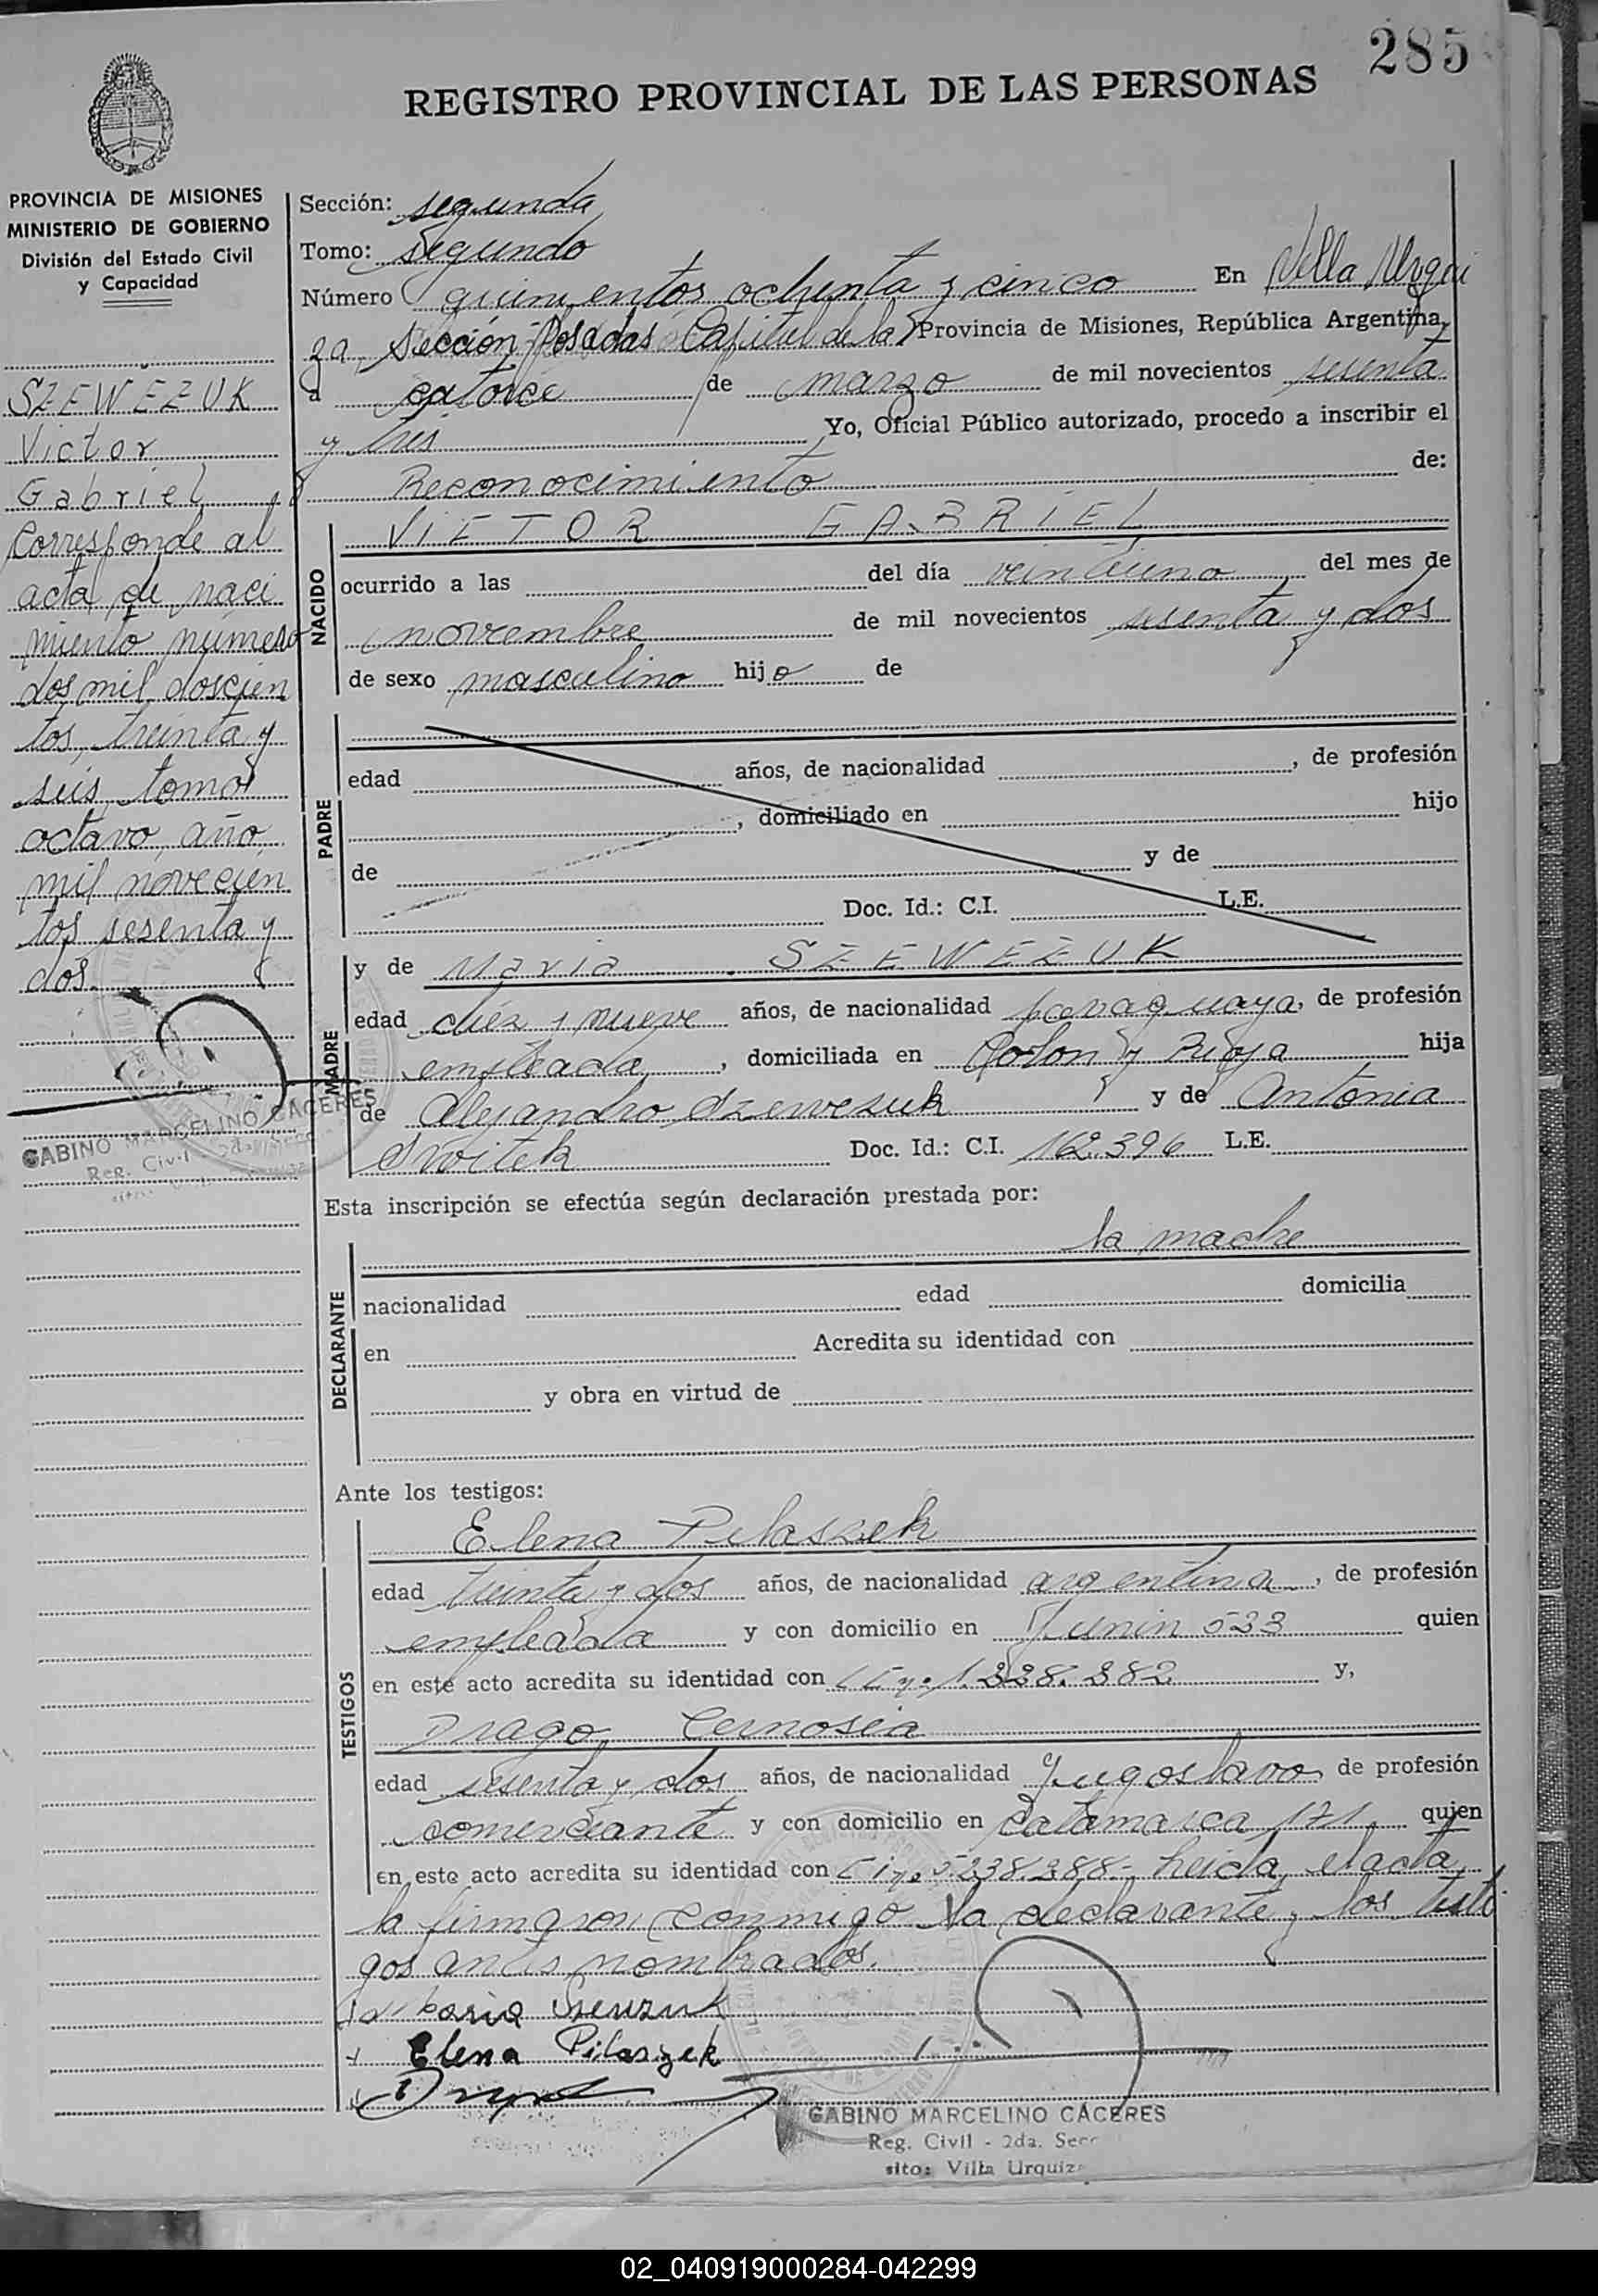 285
REGISTRO PROVINCIAL DE LAS PERSONAS
PROVINCIA DE MISIONES
MINISTERIO DE GOBIERNO
División del Estado Civil
y Capacidad
SZEWEZUK
Victor
Gabriel
Corresponde al
acta de naci
miento número
dos mil doscien
tos treinta y
seis tomo
octavo, año,
mil novecien
tos sesenta y
dos.
GABINO MARCELINO CACERES
Reg. Civil
Sección: segunda
Tomo: segundo
Número quinientos ochenta y cinco En Villa Urqui
za Sección Posadas Capital de la Provincia de Misiones, República Argentina,
a catorce de marzo de mil novecientos sesenta
y tres Yo, Oficial Público autorizado, procedo a inscribir el
Reconocimiento de:
NACIDO
VICTOR GABRIEL
ocurrido a las del día veintiuno del mes de
noviembre de mil novecientos sesenta y dos
de sexo masculino hijo de
PADRE
edad años, de nacionalidad , de profesión
, domiciliado en hijo
de y de
Doc. Id.: C.I. L.E.
MADRE
y de Maria SZEWEZUK
edad diez y nueve años, de nacionalidad paraguaya, de profesión
empleada, domiciliada en Colon y Rioja hija
de Alejandro Szewezuk y de Antonia
Switek Doc. Id.: C.I. 162.396 L.E.
Esta inscripción se efectúa según declaración prestada por:
la madre
DECLARANTE
nacionalidad edad domicilia
en Acredita su identidad con
y obra en virtud de
Ante los testigos:
TESTIGOS
Elena Pilaszek
edad treinta y dos años, de nacionalidad argentina, de profesión
empleada y con domicilio en Junin 533 quien
en este acto acredita su identidad con y,
Drago Cernosia
edad sesenta y dos años, de nacionalidad Yugoslavo de profesión
comerciante y con domicilio en Catamarca 171, quien
en este acto acredita su identidad con leida el acta,
la firman con conmigo la declarante y los testi
gos antes nombrados.
Elena Pilaszek
GABINO MARCELINO CÁCERES
Reg. Civil - 2da. Secc
sito: Villa Urquiza
02_040919000284-042299